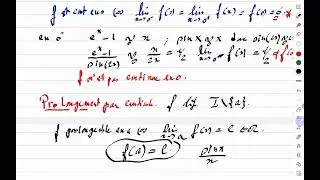 f est cont en 0 ⇔ lim f(x) = lim f(x) = f(0)
x→0⁻ x→0⁺
en 0 eˣ-1 ~ x ; sin x ~ x donc sin(2x) ~ 2x
eˣ-1 / sin(2x) ~ x/2x = 1/2 lim f(x) = 1/2 ≠ f(0)
f n'est pas continue en 0.
Prolongement par continuité. f déf I\{a}.
f prolongeable en a ⇔ lim f(x) = l ∈ ℝ.
x→a
f(a) = l sin x / x